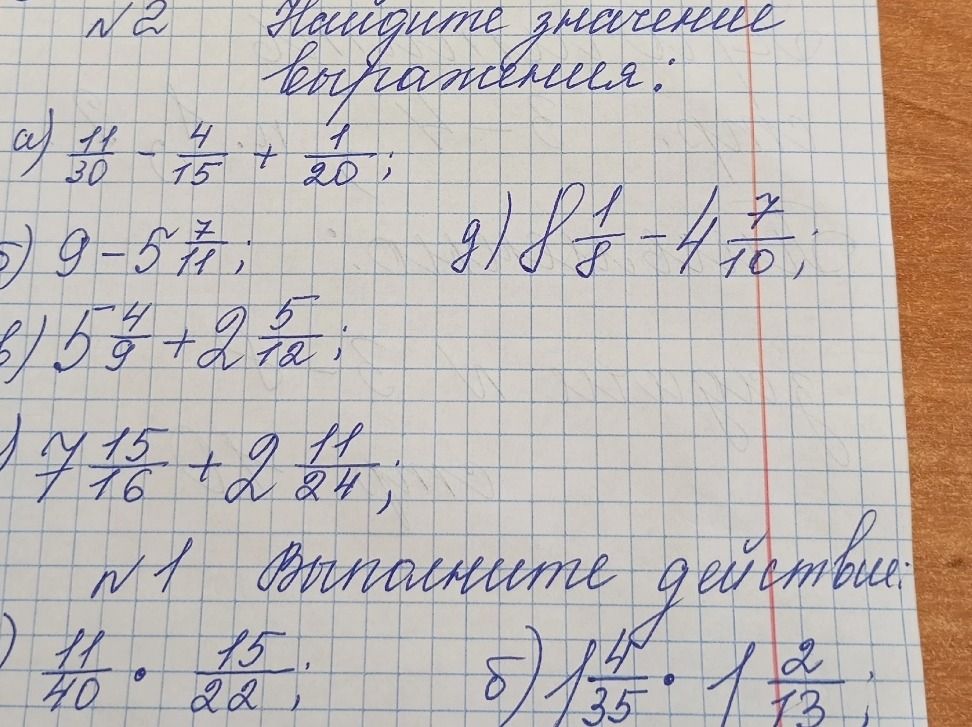 №2 Найдите значение
выражения:
а) 11/30 - 4/15 + 1/20;
б) 9 - 5 7/11; д) 8 1/8 - 4 7/10;
в) 5 4/9 + 2 5/12;
) 7 15/16 + 2 11/24;
№1 Выполните действие:
) 11/40 · 15/22; б) 1 4/35 · 1 2/13;